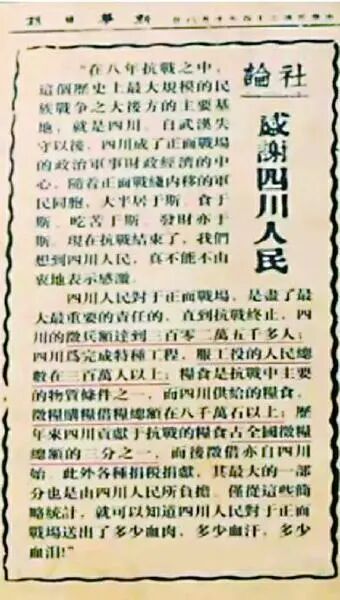 新華日報
社論
感謝四川人民
“在八年抗戰之中，
這個歷史上最大規模的民
族戰争之大後方的主要基
地，就是四川。自武漢失
守以後，四川成了正面戰場
的政治軍事財政經濟的中
心，隨着正面戰綫内移的軍
民同胞，大半居于斯、食于
斯、吃苦于斯、發財亦于
斯。現在抗戰結束了，我們
想到四川人民，真不能不由
衷地表示感激。
四川人民對于正面戰場，是盡了最
大最重要的責任的，直到抗戰終止，四
川的徵兵額達到三百零二萬五千多人；
四川爲完成特種工程，服工役的人民總
數在三百萬人以上；糧食是抗戰中主要
的物質條件之一，而四川供給的糧食，
徵糧購糧借糧總額在八千萬石以上；歷
年來四川貢獻于抗戰的糧食占全國徵糧
總額的三分之一，而後徵借亦自四川
始。此外各種捐税捐獻，其最大的一部
分也是由四川人民所負擔。僅從這些簡
略統計，就可以知道四川人民對于正面
戰場送出了多少血肉，多少血汗，多少
血泪!”